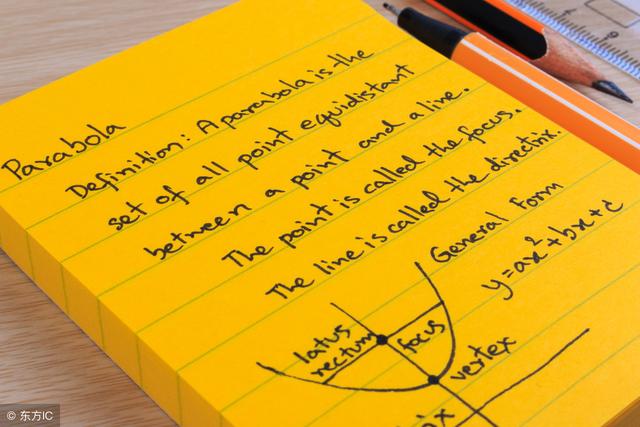 Parabola
Definition: A parabola is the
set of all point equidistant
between a point and a line.
The point is called the focus.
The line is called the directrix.
General form
y=ax²+bx+c
latus
rectum
focus
vertex
© 东方IC